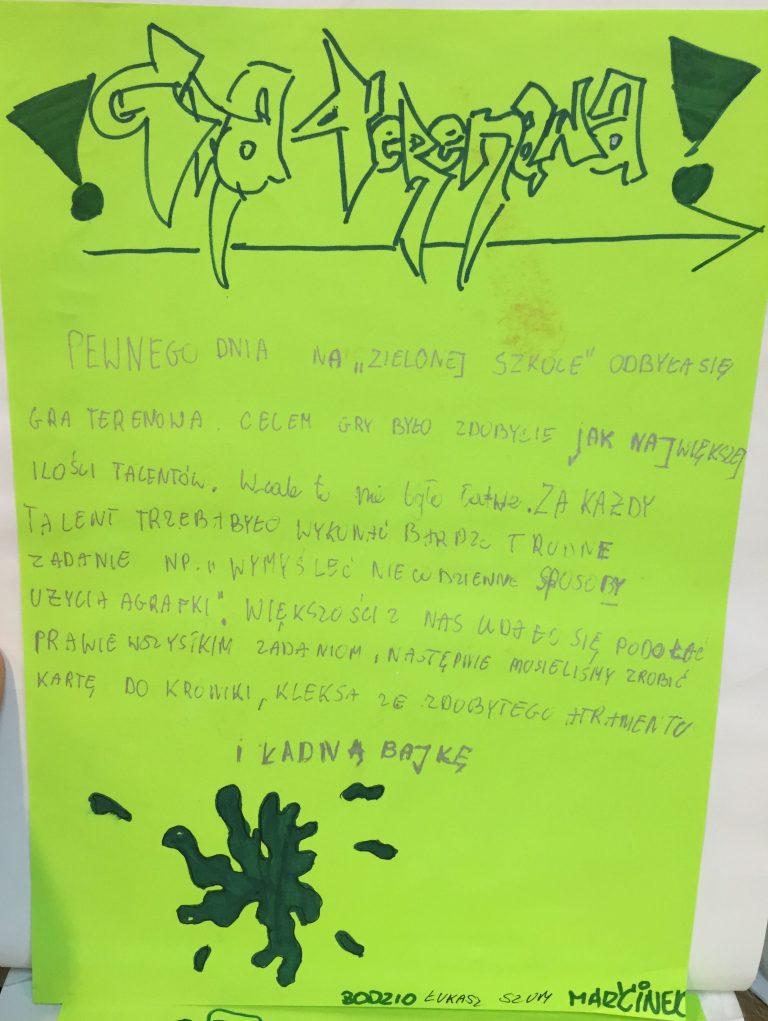 Gra terenowa
PEWNEGO DNIA NA „ZIELONEJ SZKOLE" ODBYŁA SIĘ
GRA TERENOWA. CELEM GRY BYŁO ZDOBYCIE JAK NAJWIĘKSZEJ
ILOŚCI TALENTÓW. Wcale to nie było łatwe. ZA KAŻDY
TALENT TRZEBA BYŁO WYKONAĆ BARDZO TRUDNE
ZADANIE NP. „WYMYŚLEĆ NIECODZIENNE SPOSOBY
UŻYCIA AGRAFKI". WIĘKSZOŚCI Z NAS UDAŁO SIĘ PODOŁAĆ
PRAWIE WSZYSTKIM ZADANIOM, NASTĘPNIE MUSIELIŚMY ZROBIĆ
KARTĘ DO KRONIKI, KLEKSA ZE ZDOBYTEGO ATRAMENTU
I ŁADNĄ BAJKĘ
BODZIO ŁUKASZ SZUMY MARCINEK